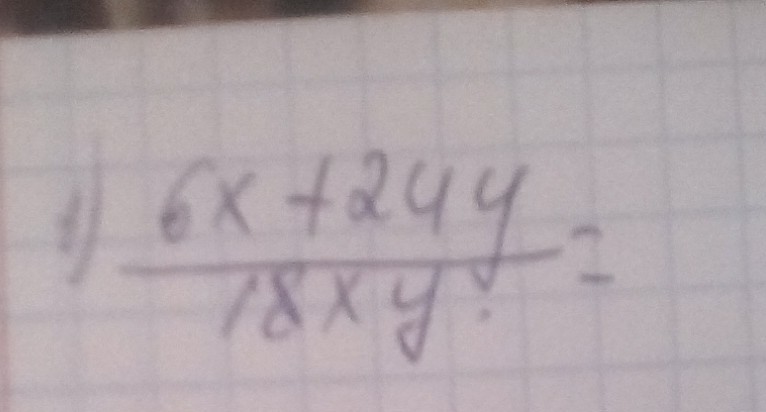 1) 6x + 24y
18xy =